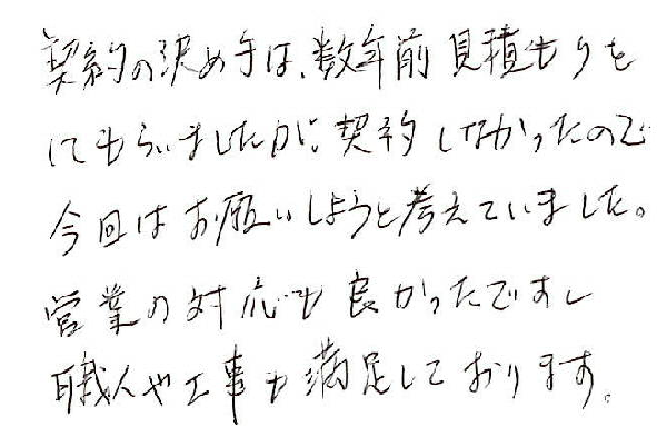 契約の決め手は、数年前見積もりを
してもらいましたが、契約しなかったので
今回はお願いしようと考えていました。
営業の対応も良かったですし
職人や工事も満足しております。